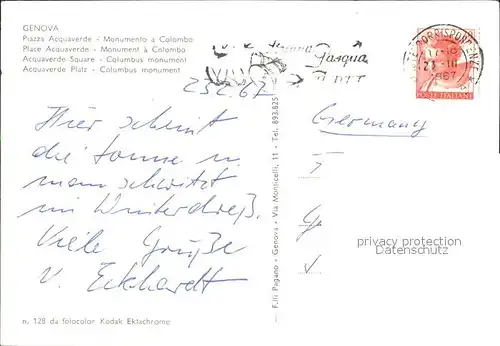 GENOVA
Piazza Acquaverde - Monumento a Colombo
Place Acquaverde - Monument à Colombo
Acquaverde Square - Columbus monument
Acquaverde Platz - Columbus monument
Pasqua
1967
POSTE ITALIANE
23.2.67
Hier scheint
die Sonne u.
man schwitzt
im Winterdreß.
Viele Grüße
v. Eckhardt
Germany
privacy protection
Datenschutz
F.lli Pagano - Genova - Via Monticelli, 11 - Tel. 893.825
n. 128 da fotocolor Kodak Ektachrome